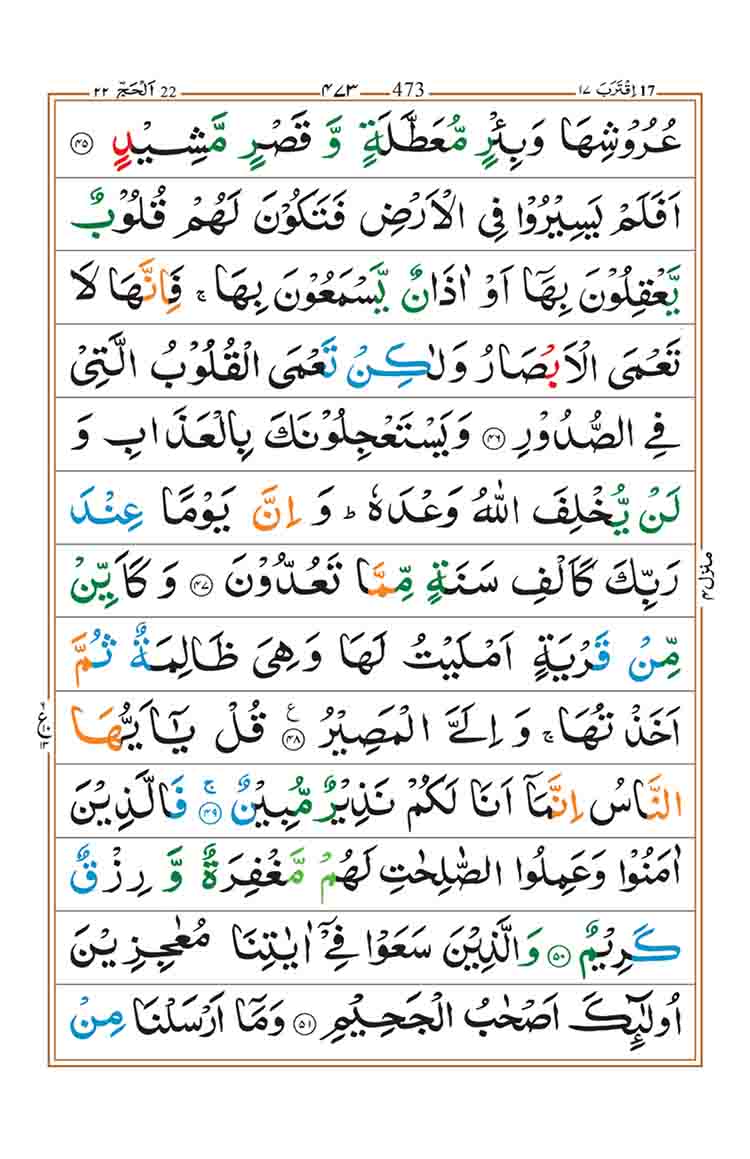 17 اِقْتَرَبَ ١٧ 473 ۴۷۳ 22 اَلْحَجّ ٢٢
عُرُوْشِهَا وَبِئْرٍ مُّعَطَّلَةٍ وَّ قَصْرٍ مَّشِيْدٍ ﴿۴۵﴾
اَفَلَمْ يَسِيْرُوْا فِى الْاَرْضِ فَتَكُوْنَ لَهُمْ قُلُوْبٌ
يَّعْقِلُوْنَ بِهَاۤ اَوْ اٰذَانٌ يَّسْمَعُوْنَ بِهَا ۚ فَاِنَّهَا لَا
تَعْمَى الْاَبْصَارُ وَلٰكِنْ تَعْمَى الْقُلُوْبُ الَّتِىْ
فِى الصُّدُوْرِ ﴿۴۶﴾ وَيَسْتَعْجِلُوْنَكَ بِالْعَذَابِ وَ
لَنْ يُّخْلِفَ اللّٰهُ وَعْدَهٗ ؕ وَ اِنَّ يَوْمًا عِنْدَ
رَبِّكَ كَاَلْفِ سَنَةٍ مِّمَّا تَعُدُّوْنَ ﴿۴۷﴾ وَ كَاَيِّنْ
مِّنْ قَرْيَةٍ اَمْلَيْتُ لَهَا وَهِىَ ظَالِمَةٌ ثُمَّ
اَخَذْتُهَا ۚ وَ اِلَىَّ الْمَصِيْرُ ﴿۴۸﴾ ع قُلْ يٰۤاَيُّهَا
النَّاسُ اِنَّمَاۤ اَنَا لَكُمْ نَذِيْرٌ مُّبِيْنٌ ﴿۴۹﴾ ۚ فَالَّذِيْنَ
اٰمَنُوْا وَعَمِلُوا الصّٰلِحٰتِ لَهُمْ مَّغْفِرَةٌ وَّ رِزْقٌ
كَرِيْمٌ ﴿۵۰﴾ وَالَّذِيْنَ سَعَوْا فِىْۤ اٰيٰتِنَا مُعٰجِزِيْنَ
اُولٰٓئِكَ اَصْحٰبُ الْجَحِيْمِ ﴿۵۱﴾ وَمَاۤ اَرْسَلْنَا مِنْ
منزل ۴